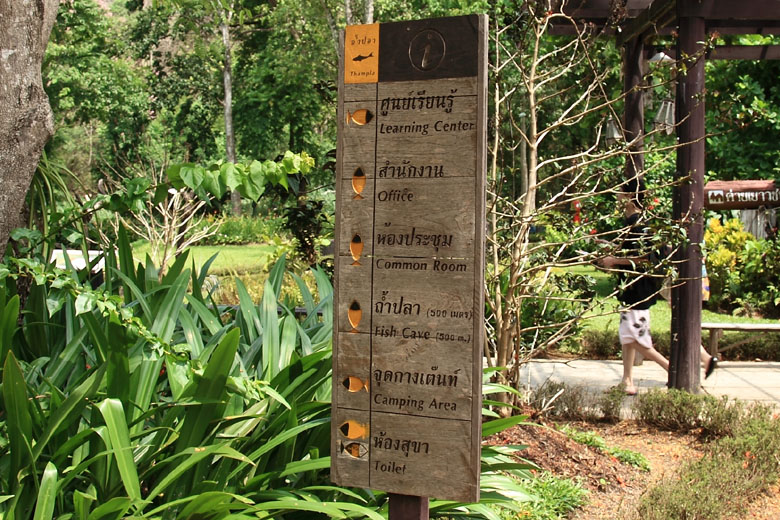 ถ้ำปลา
Thampla
ศูนย์เรียนรู้
Learning Center
สำนักงาน
Office
ห้องประชุม
Common Room
ถ้ำปลา (500 เมตร)
Fish Cave (500 m.)
จุดกางเต็นท์
Camping Area
ห้องสุขา
Toilet